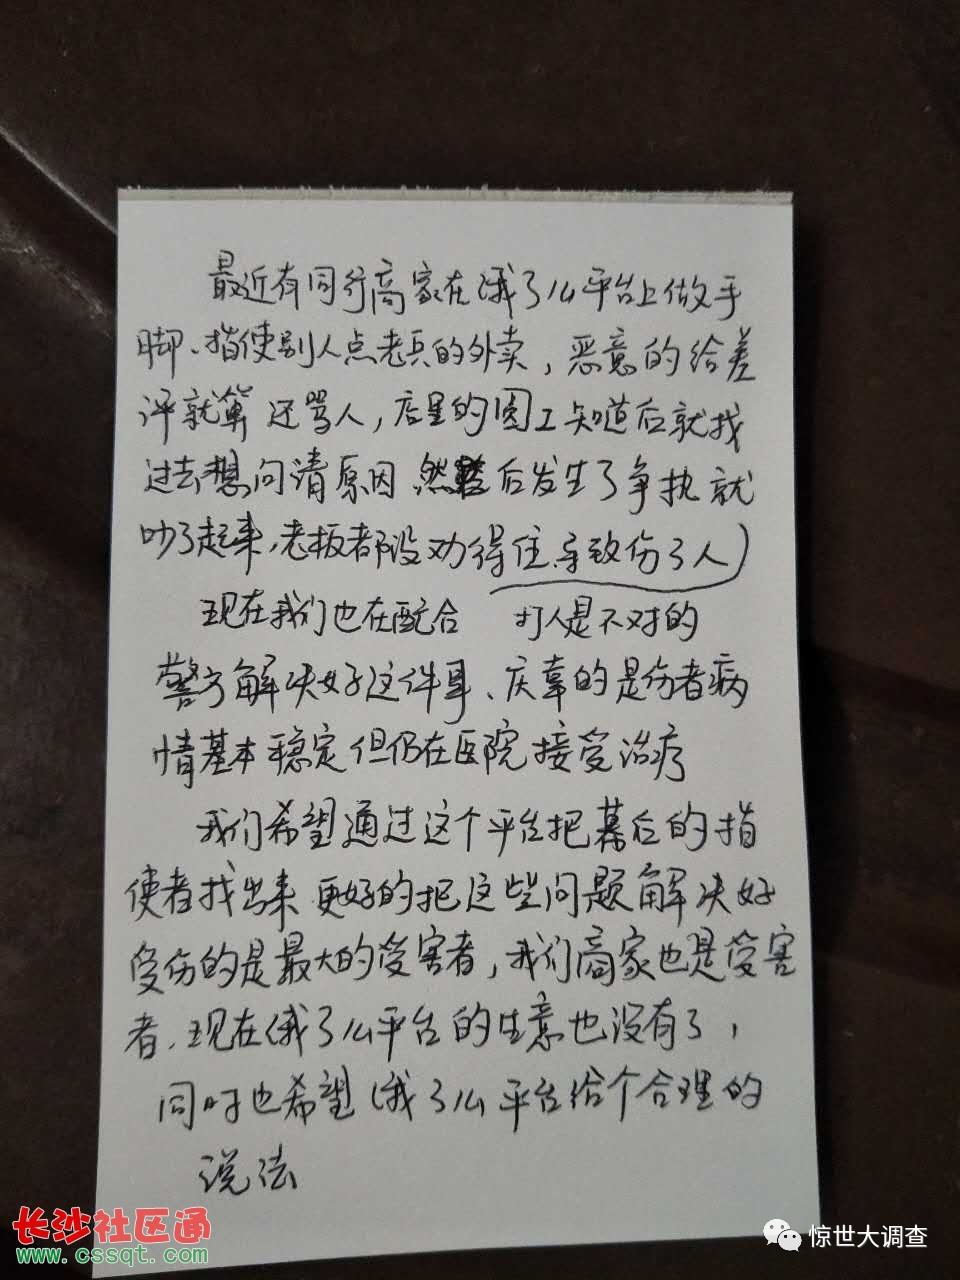 最近有同行商家在饿了么平台上做手
脚、指使别人点老兵的外卖，恶意的给差
评就算 还骂人，店里的员工知道后就找
过去想问清原因 然后发生了争执就
吵了起来，老板都没劝得住、导致伤了人）
现在我们也在配合 打人是不对的
警方解决好这件事、庆幸的是伤者病
情基本稳定但仍在医院接受治疗
我们希望通过这个平台把幕后的指
使者找出来 更好的把这些问题解决好
受伤的是最大的受害者，我们商家也是受害
者、现在饿了么平台的生意也没有了，
同时也希望饿了么平台给个合理的
说法
长沙社区通
www.cssqt.com
惊世大调查